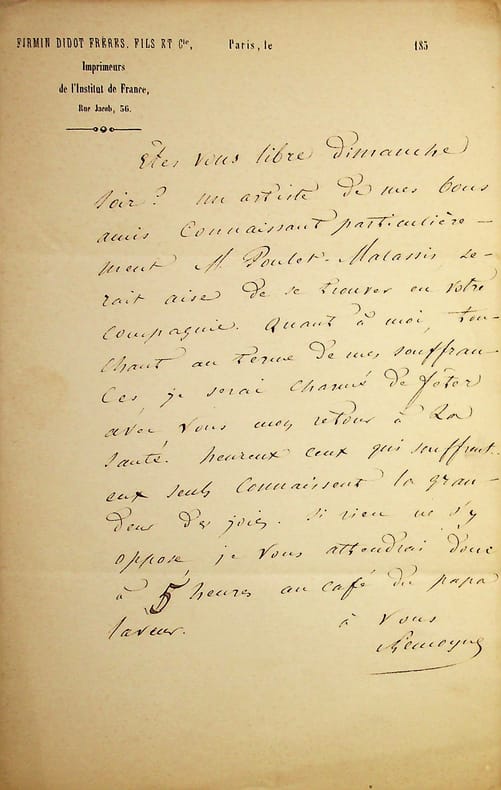 FIRMIN DIDOT FRÈRES, FILS ET Cie,
Paris, le 185
Imprimeurs
de l'Institut de France,
Rue Jacob, 56.
Etes vous libre Dimanche
soir? un artiste de mes bons
amis connaissant particulière-
ment M. Poulet-Malassis se-
rait aise de se trouver en votre
compagnie. Quant à moi, tou-
chant au terme de mes souffran-
ces je serai charmé de fêter
avec vous mon retour à la
santé. heureux ceux qui souffrent.
eux seuls connaissent la gran-
deur des joies. Si rien ne s'y
oppose, je vous attendrai donc
à 5 heures au café du papa
laveur.
à vous
Lemoyne